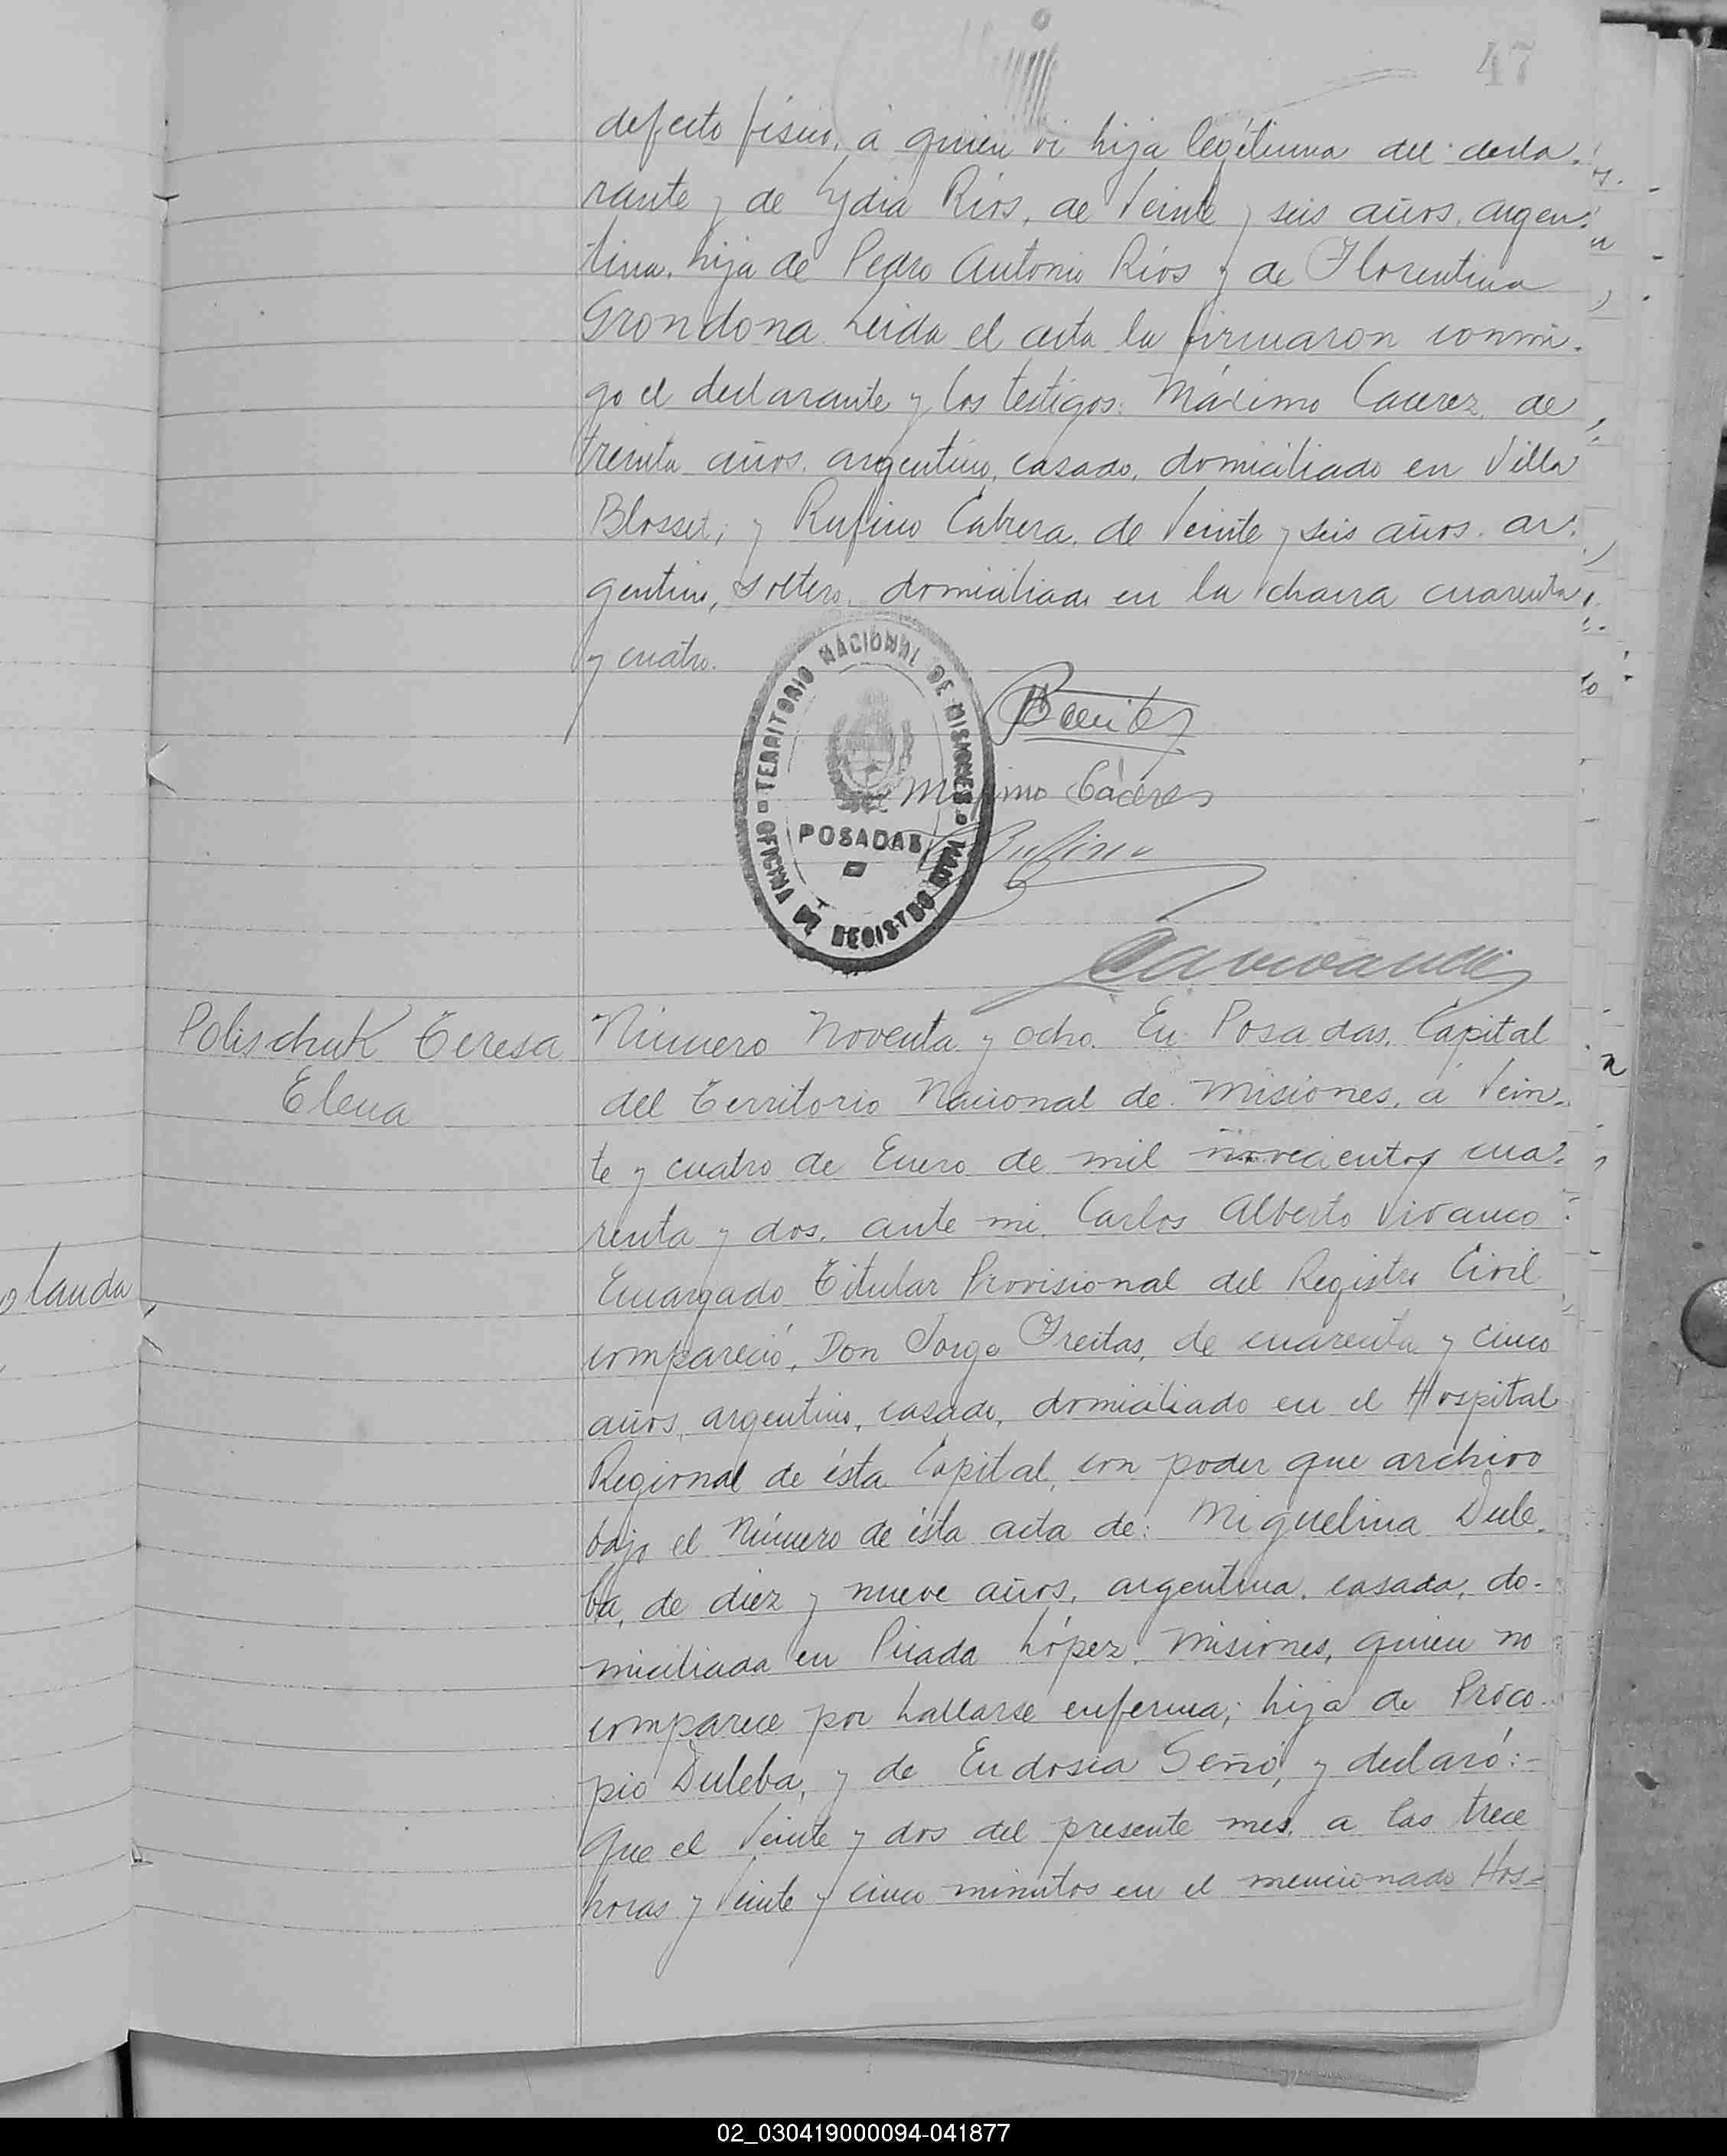 47
defecto físico, á quien vi hija legítima del decla-
rante y de Lydia Ríos, de veinte y seis años, argen-
tina, hija de Pedro Antonio Ríos y de Florentina
Grondona Leída el acta la firmaron conmi-
go el declarante y los testigos: Máximo Cacerez, de
treinta años, argentino, casado, domiciliado en Villa
Blosset; y Rufino Cabrera, de veinte y seis años, ar-
gentino, soltero, domiciliado en la chacra cuarenta
y cuatro.
OFICINA DE REGISTRO TERRITORIO NACIONAL DE MISIONES
POSADAS
Benitez
Maximo Cáceres
Rufino
Polischuk Teresa
Elena
Número Noventa y ocho. En Posadas, Capital
del Territorio Nacional de Misiones, á vein-
te y cuatro de Enero de mil novecientos cua-
renta y dos, ante mi, Carlos Alberto Vivanco
Encargado Titular Provisional del Registro Civil
compareció, Don Jorge Freitas, de cuarenta y cinco
años, argentino, casado, domiciliado en el Hospital
Regional de ésta Capital, con poder que archivo
bajo el Número de ésta acta de: Miguelina Dule-
ba, de diez y nueve años, argentina, casada, do-
miciliada en Picada López, Misiones, quien no
comparece por hallarse enferma; hija de Proco-
pio Duleba, y de Eudosia Seño, y declaró:-
Que el veinte y dos del presente mes, a las trece
horas y veinte y cinco minutos en el mencionado Hos-
landa
02_030419000094-041877